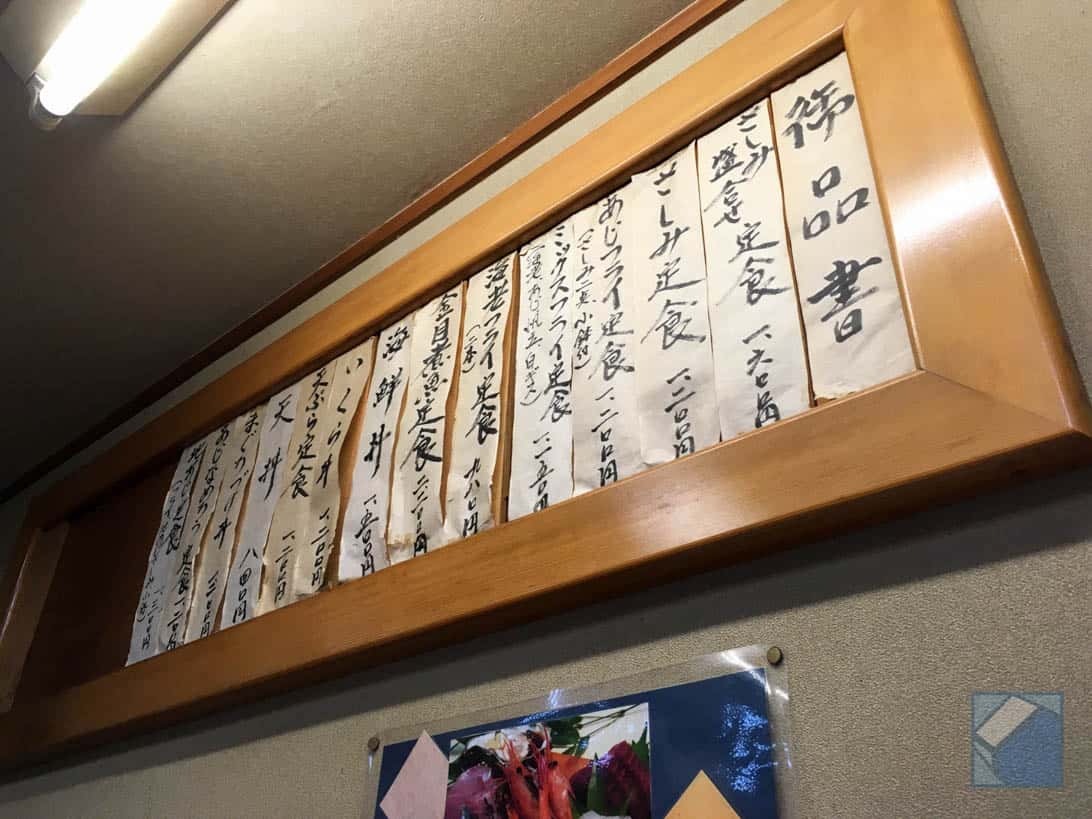 御品書
さしみ盛合せ定食 一、六〇〇円
さしみ定食 一、二〇〇円
あじフライ定食 一、二〇〇円
(さしみ二点小鉢付)
ミックスフライ定食 一、一五〇円
海老フライ定食 九八〇円
(二本)
金目煮魚定食
海鮮丼 一、五〇〇円
いくら丼 一、二〇〇円
天ぷら定食 一、二〇〇円
天丼 八四〇円
まぐろづけ丼
あじなめろう定食 一、二〇〇円
定食 一、二〇〇円